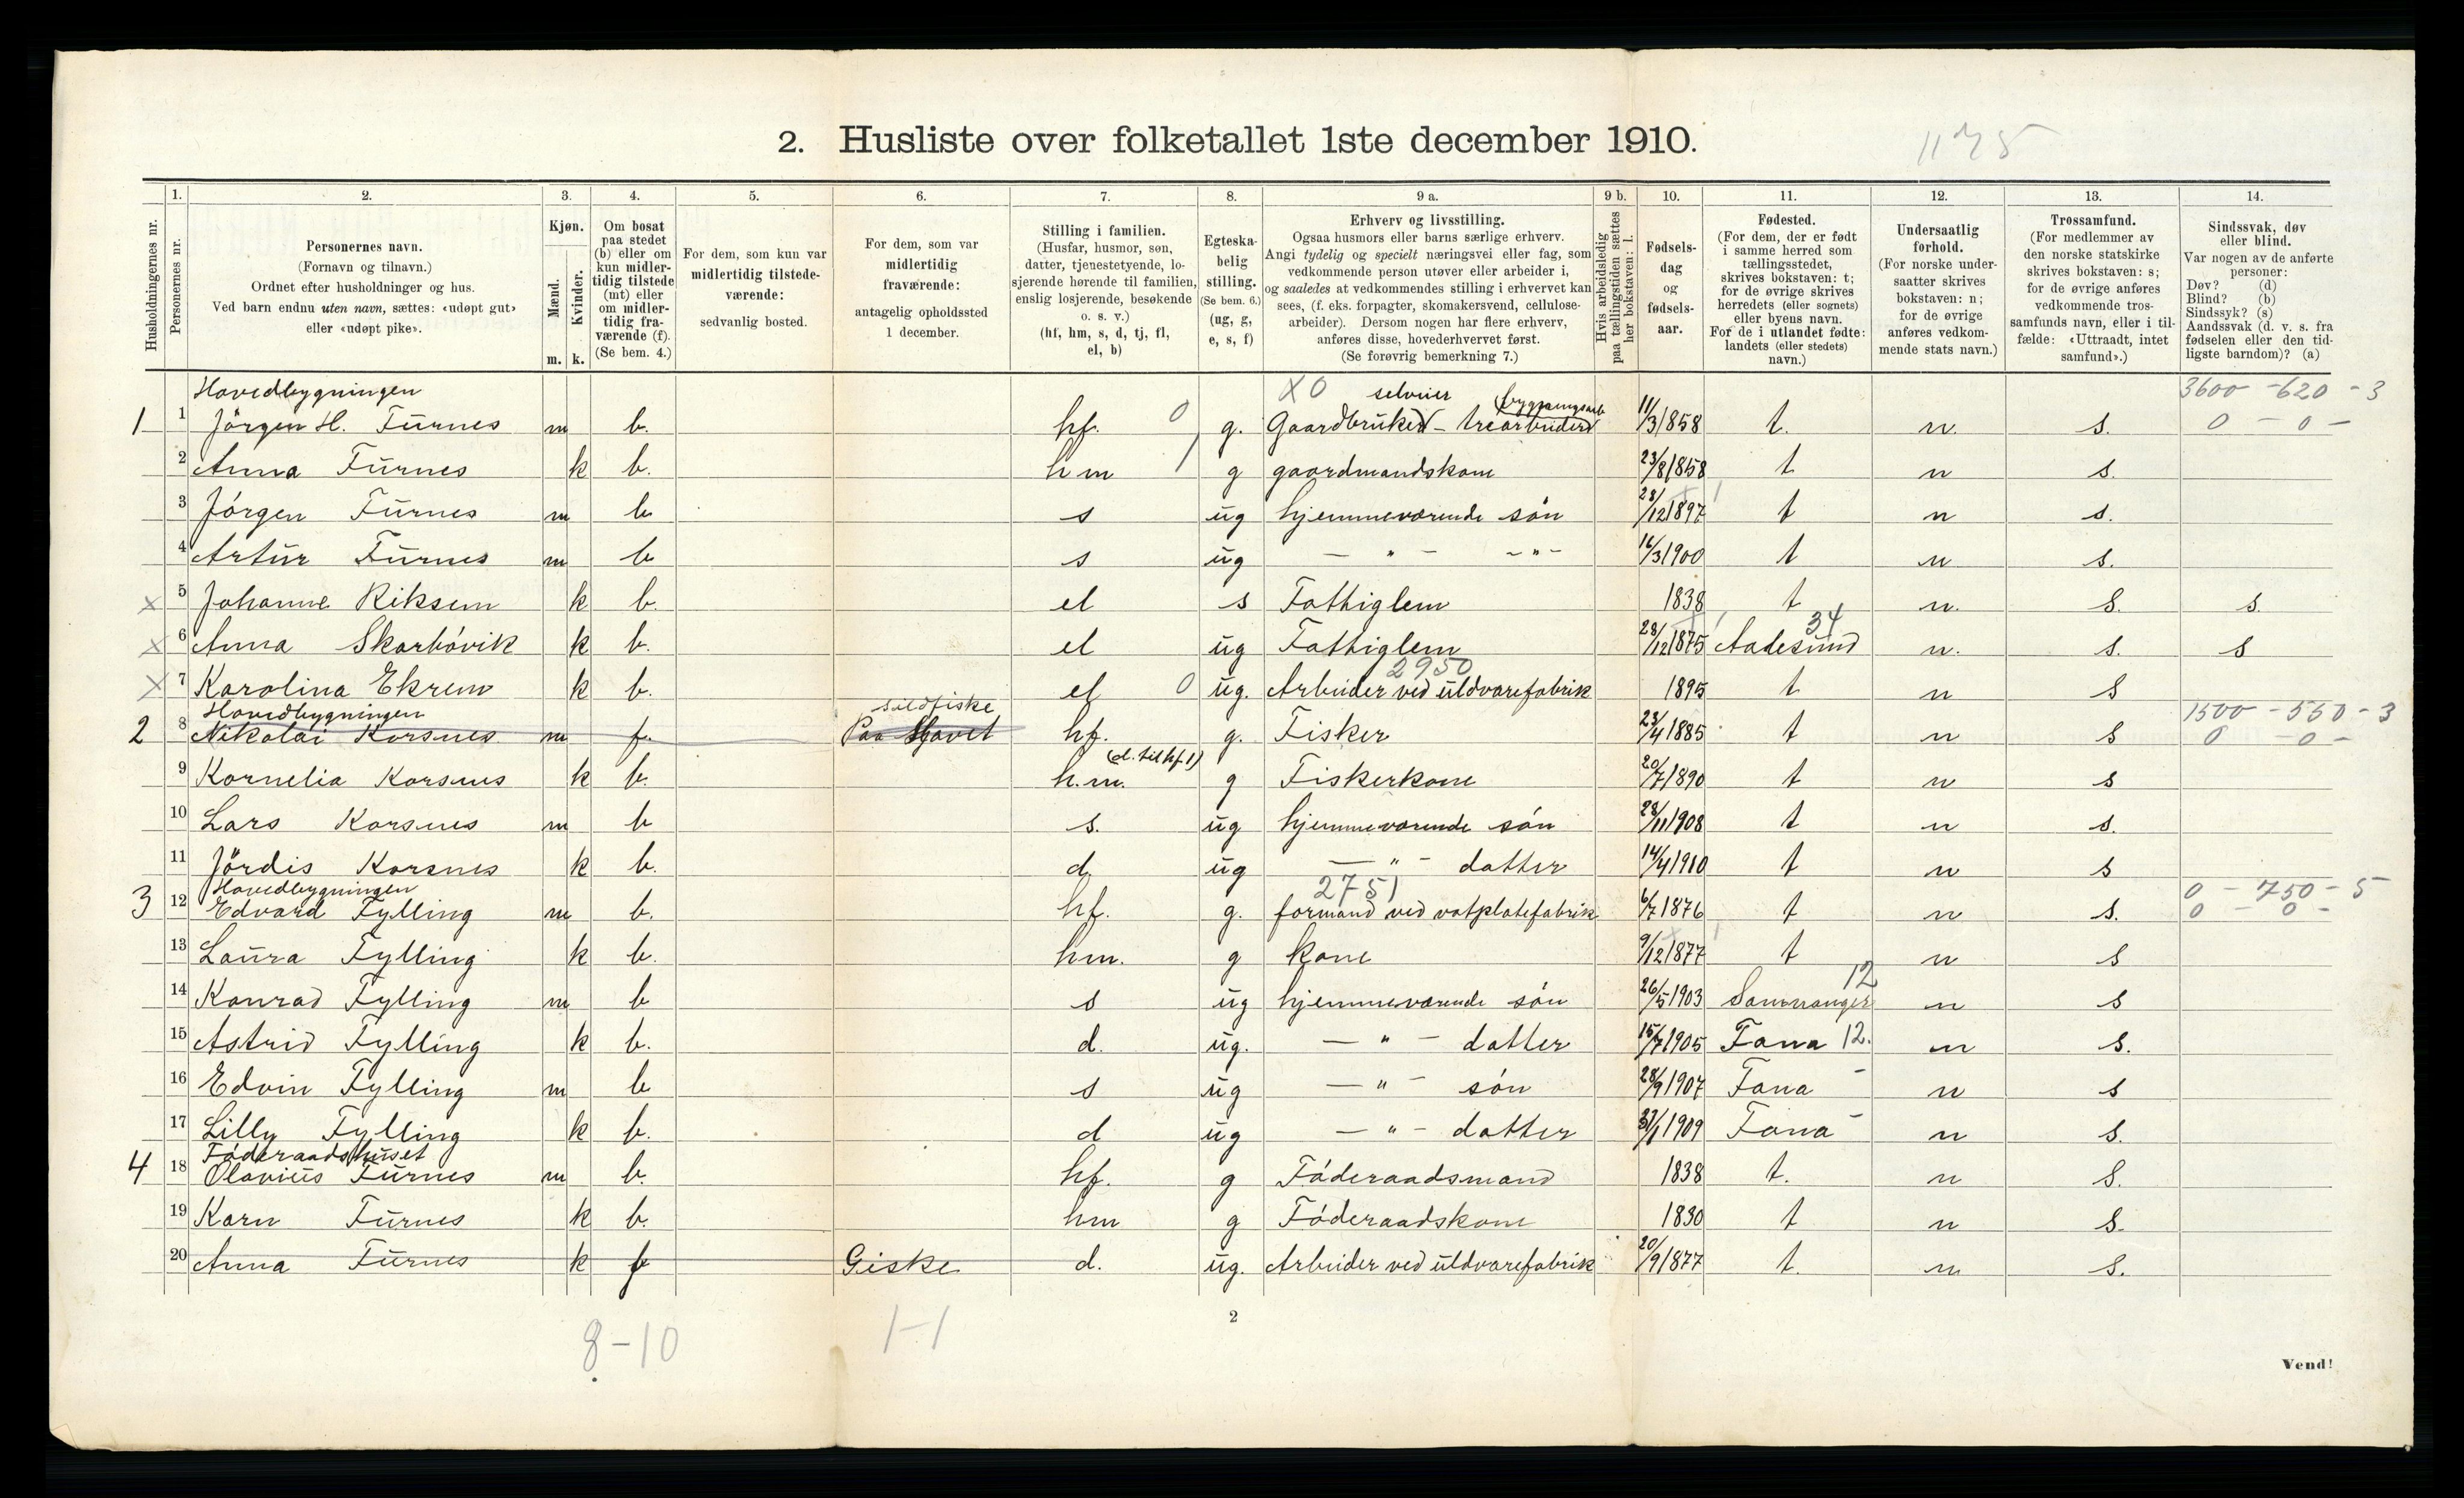 2. Husliste over folketallet 1ste december 1910.
1175
1. 2. 3. 4. 5. 6. 7. 8. 9 a. 9 b. 10. 11. 12. 13. 14.
Husholdningernes nr.
Personernes nr.
Personernes navn.
(Fornavn og tilnavn.)
Ordnet efter husholdninger og hus.
Ved barn endnu uten navn, sættes: «udøpt gut»
eller «udøpt pike».
Kjøn.
Mænd.
Kvinder.
m. k.
Om bosat
paa stedet
(b) eller om
kun midler-
tidig tilstede
(mt) eller
om midler-
tidig fra-
værende (f).
(Se bem. 4.)
For dem, som kun var
midlertidig tilstede-
værende:
sedvanlig bosted.
For dem, som var
midlertidig
fraværende:
antagelig opholdssted
1 december.
Stilling i familien.
(Husfar, husmor, søn,
datter, tjenestetyende, lo-
sjerende hørende til familien,
enslig losjerende, besøkende
o. s. v.)
(hf, hm, s, d, tj, fl,
el, b)
Egteska-
belig
stilling.
(Se bem. 6.)
(ug, g,
e, s, f)
Erhverv og livsstilling.
Ogsaa husmors eller barns særlige erhverv.
Angi tydelig og specielt næringsvei eller fag, som
vedkommende person utøver eller arbeider i,
og saaledes at vedkommendes stilling i erhvervet kan
sees, (f. eks. forpagter, skomakersvend, cellulose-
arbeider). Dersom nogen har flere erhverv,
anføres disse, hovederhvervet først.
(Se forøvrig bemerkning 7.)
Hvis arbeidsledig
paa tællingstiden sættes
her bokstaven: l.
Fødsels-
dag
og
fødsels-
aar.
Fødested.
(For dem, der er født
i samme herred som
tællingsstedet,
skrives bokstaven: t;
for de øvrige skrives
herredets (eller sognets)
eller byens navn.
For de i utlandet fødte:
landets (eller stedets)
navn.)
Undersaatlig
forhold.
(For norske under-
saatter skrives
bokstaven: n;
for de øvrige
anføres vedkom-
mende stats navn.)
Trossamfund.
(For medlemmer av
den norske statskirke
skrives bokstaven: s;
for de øvrige anføres
vedkommende tros-
samfunds navn, eller i til-
fælde: «Uttraadt, intet
samfund».)
Sindssvak, døv
eller blind.
Var nogen av de anførte
personer:
Døv? (d)
Blind? (b)
Sindssyk? (s)
Aandssvak (d. v. s. fra
fødselen eller den tid-
ligste barndom)? (a)
Hovedbygningen X0 selveier bygningsarb 3600 - 620 - 3
1 1 Jörgen H. Furnes m b. hf. 0 g. Gaardbruker - trearbeider 11/3 1858 t. n. s. 0 - 0 -
2 Anna Furnes k b. hm 1 g gaardmandskone 23/8 1858 t n s.
3 Jörgen Furnes m b s ug hjemmeværende sön 28/12 1897 t n s.
4 Artur Furnes m b s ug - " - - " - 16/3 1900 t n s.
X 5 Johanne Riksem k b. el s Fattiglem 1838 t n. s. s.
X 6 Anna Skarbövik k b. el ug Fattiglem 28/12 1875 Aalesund 34 n. s. s
X 7 Karolina Ekrem k b. el 0 ug. Arbeider ved uldvarefabrik 2950 1895 t n s
Hovedbygningen sildfiske 1500 - 550 - 3
2 8 Nikolai Korsnes m f. Paa Havet hf. g. Fisker 23/4 1885 t n s 0 - 0 -
9 Kornelia Korsnes k b. h.m. (d. til hf 1) g Fiskerkone 20/7 1890 t n s
10 Lars Korsnes m b s. ug hjemmeværende sön 28/11 1908 t n s.
11 Jördis Korsnes k b. d. ug - " - datter 14/4 1910 t n s
Hovedbygningen 2751 0 - 750 - 5
3 12 Edvard Fylling m b. hf. g. formand ved vatplatefabrik 6/7 1876 t n s. 0 - 0 -
13 Laura Fylling k b. hm. g kone 9/12 1877 t n s
14 Konrad Fylling m b s ug hjemmeværende sön 26/5 1903 Samnanger 12 n s
15 Astrid Fylling k b. d. ug. - " - datter 15/7 1905 Fana 12. n s.
16 Edvin Fylling m b s ug - " - sön 28/9 1907 Fana - n s
17 Lilly Fylling k b. d ug - " - datter 1909 Fana - n s.
Föderaadshuset
4 18 Olavius Furnes m b. hf. g Föderaadsmand 1838 t. n s.
19 Karn Furnes k b. hm g Föderaadskone 1830 t n s.
20 Anna Furnes k f Giske d. ug. Arbeider ved uldvarefabrik 20/9 1877 t. n s.
8-10 1-1 2
Vend!